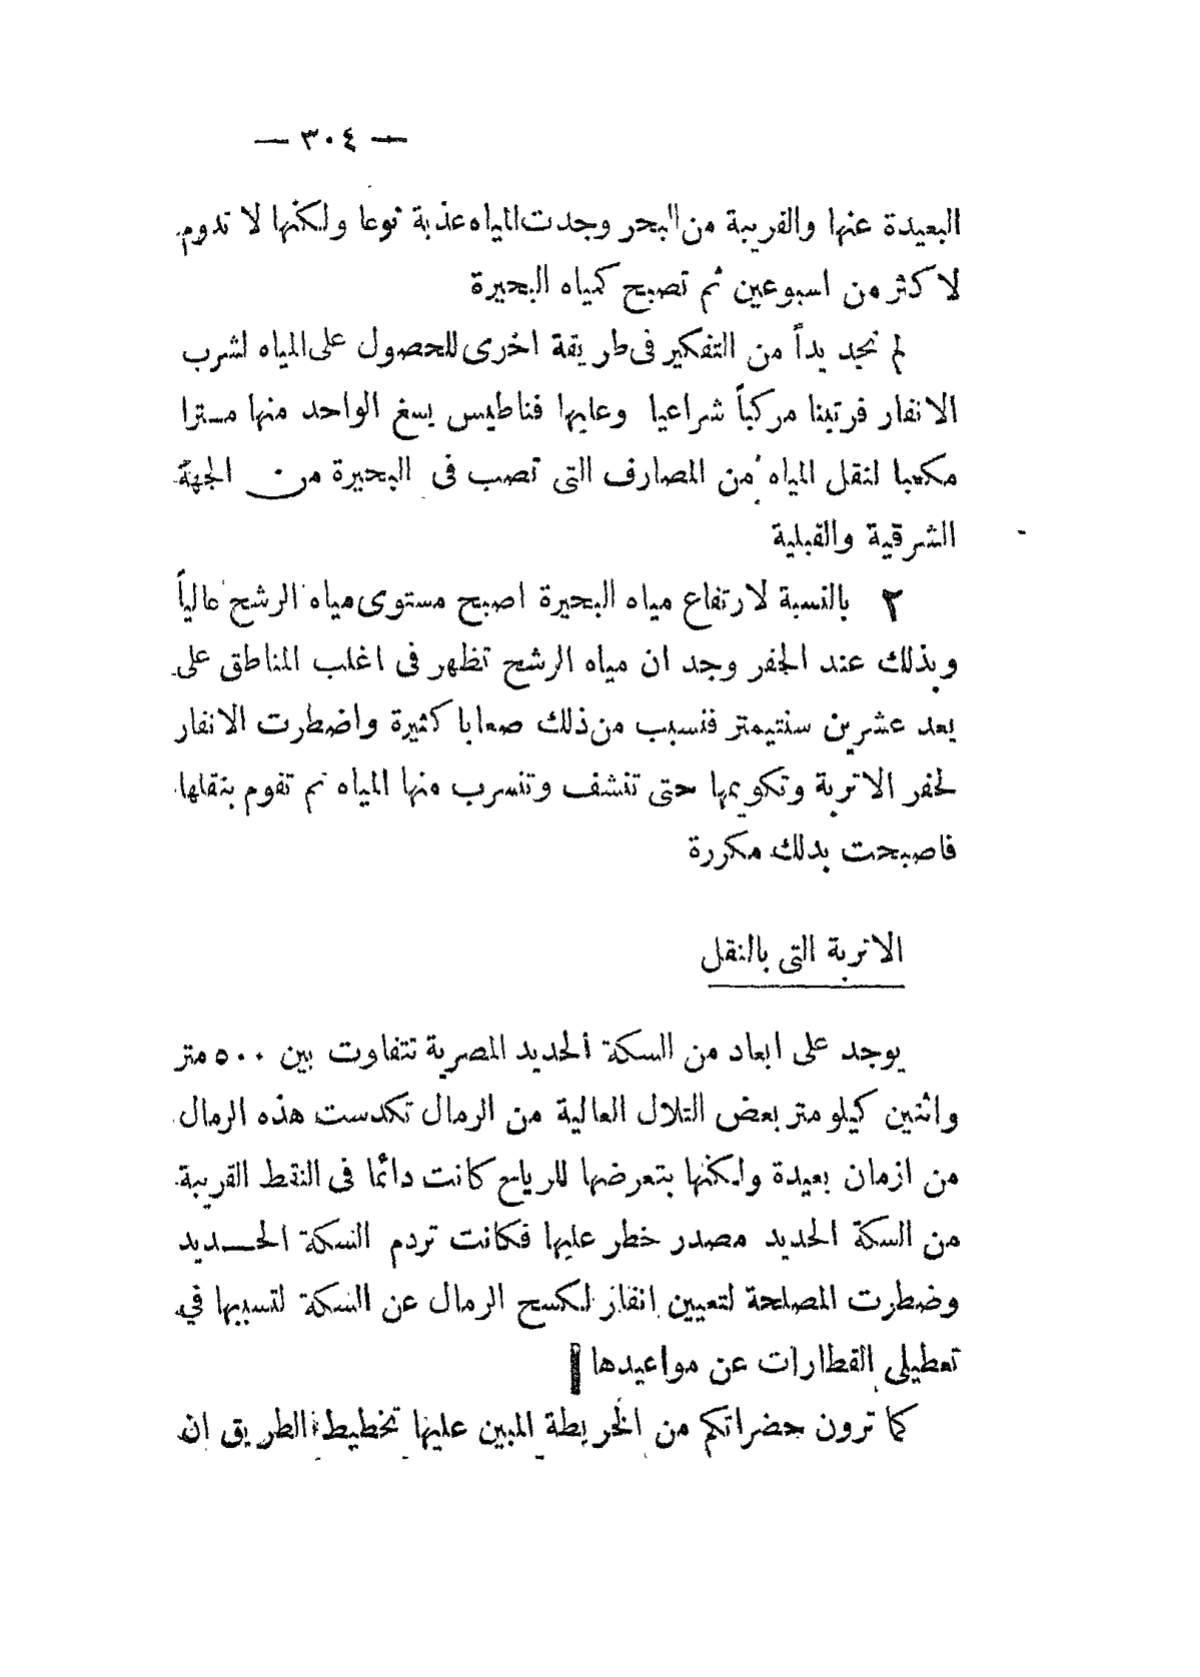 — ٣٠٤ —
البعيدة عنها والقريبة من البحر وجدت المياه عذبة نوعا ولكنها لا تدوم
لاكثر من اسبوعين ثم تصبح كمياه البحيرة
لم نجد بداً من التفكير فى طريقة اخرى للحصول على المياه لشرب
الانفار فرتبنا مركباً شراعيا وعليها فناطيس يسع الواحد منها مترا
مكعبا لنقل المياه من المصارف التى تصب فى البحيرة من الجهة
الشرقية والقبلية
٢ بالنسبة لارتفاع مياه البحيرة اصبح مستوى مياه الرشح عالياً
وبذلك عند الحفر وجد ان مياه الرشح تظهر فى اغلب المناطق على
بعد عشرين سنتيمتر فنسبب من ذلك صعابا كثيرة واضطرت الانفار
لحفر الاتربة وتكويمها حتى تنشف وتتسرب منها المياه ثم تقوم بنقلها
فاصبحت بذلك مكررة
الاتربة التى بالنقل
يوجد على ابعاد من السكة الحديد المصرية تتفاوت بين ٥٠٠ متر
واثنين كيلو متر بعض التلال العالية من الرمال تكدست هذه الرمال
من ازمان بعيدة ولكنها بتعرضها للرياح كانت دائما فى النقط القريبة
من السكة الحديد مصدر خطر عليها فكانت تردم السكة الحديد
وضطرت المصلحة لتعيين انفار لكسح الرمال عن السكة لتسببها في
تعطيل القطارات عن مواعيدها
كما ترون حضراتكم من الخريطة المبين عليها تخطيط الطريق ان